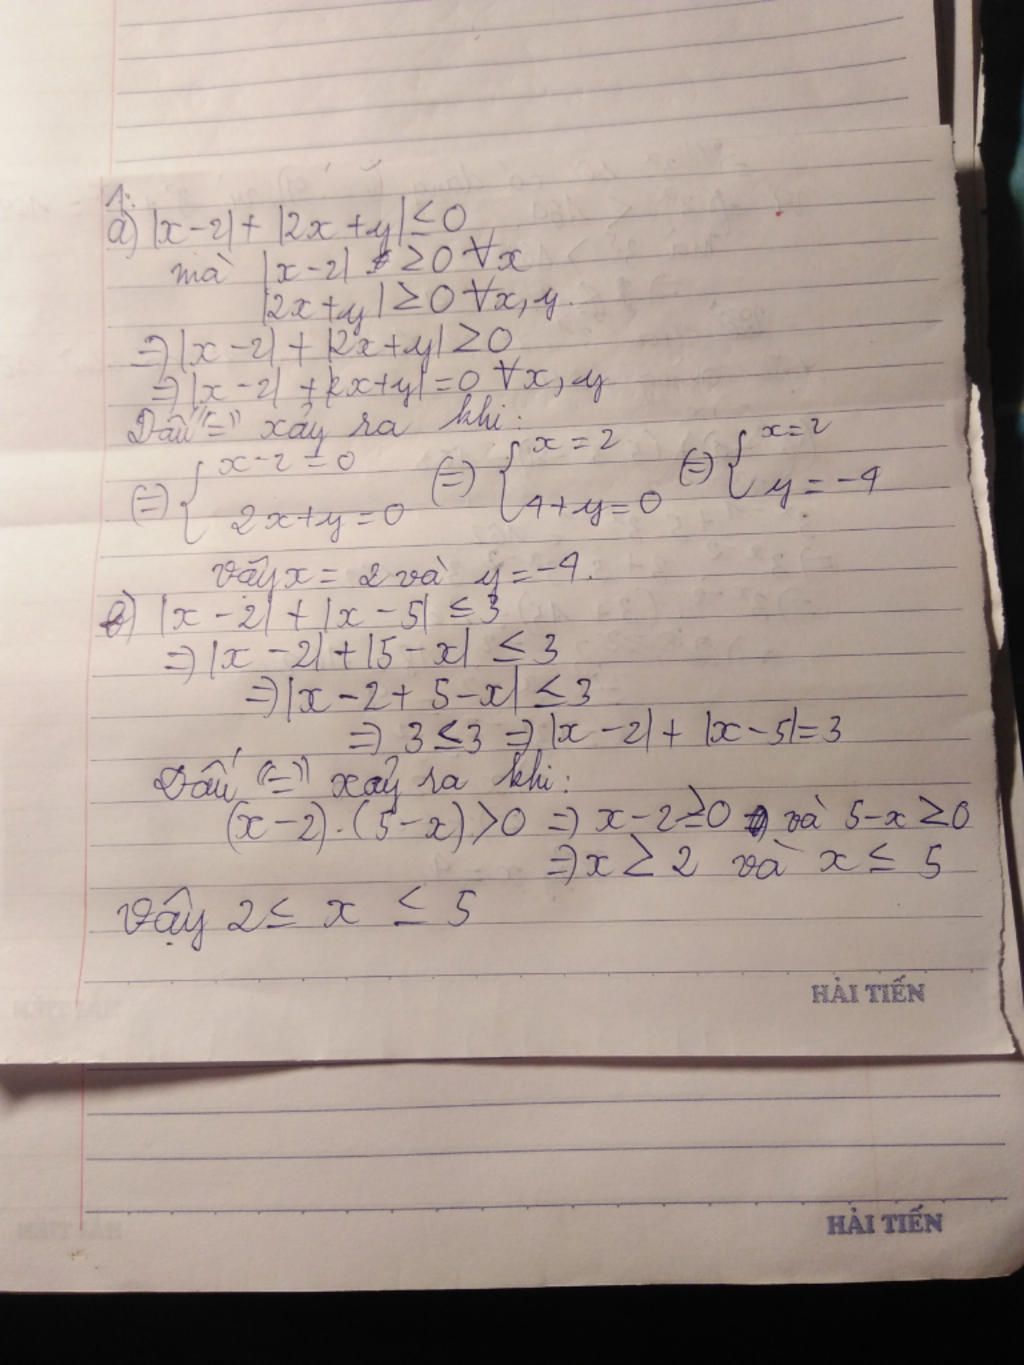 1.
a) |x-2| + |2x+y| ≤ 0
mà |x-2| ≥ 0 ∀x
|2x+y| ≥ 0 ∀x, y.
⇒ |x-2| + |2x+y| ≥ 0
⇒ |x-2| + |2x+y| = 0 ∀x, y
Dấu "=" xảy ra khi:
⇔ { x-2=0 ⇔ { x=2 ⇔ { x=2
2x+y=0 4+y=0 y=-4
Vậy x = 2 và y = -4.
b) |x-2| + |x-5| ≤ 3
⇒ |x-2| + |5-x| ≤ 3
⇒ |x-2+5-x| ≤ 3
⇒ 3 ≤ 3 ⇒ |x-2| + |x-5| = 3
Dấu "=" xảy ra khi:
(x-2).(5-x) > 0 ⇒ x-2 ≥ 0 và 5-x ≥ 0
⇒ x ≥ 2 và x ≤ 5
Vậy 2 ≤ x ≤ 5
HẢI TIẾN
HẢI TIẾN